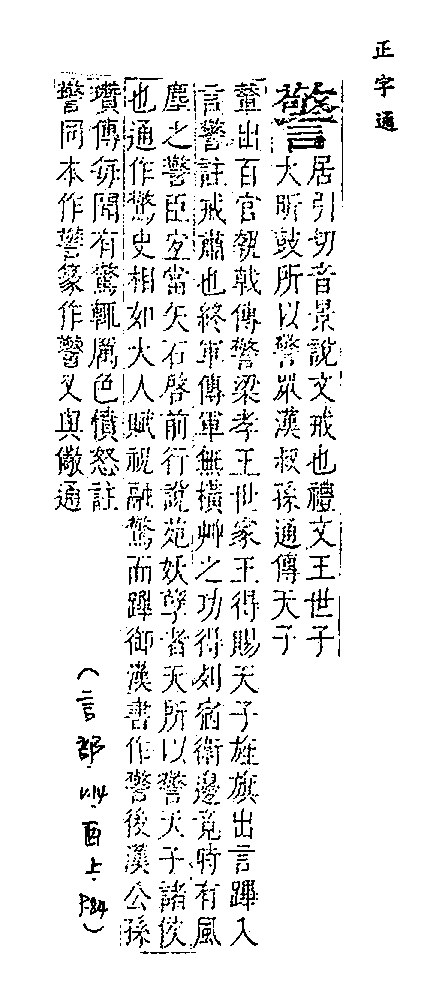 正字通
警
居引切音景說文戒也禮文王世子
大昕鼓所以警眾漢叔孫通傳天子
輦出百官執戟傳警梁孝王世家王得賜天子旌旗出言蹕入
言警註戒肅也終軍傳軍無橫艸之功得列宿衛邊竟時有風
塵之警臣宜當矢石啓前行說苑妖孽者天所以警天子諸侯
也通作驚史相如大人賦祝融驚而蹕御漢書作警後漢公孫
瓚傳每聞有驚輒厲色憤怒註
警同本作警篆作警又與儆通
(言部.酉上.P.84)